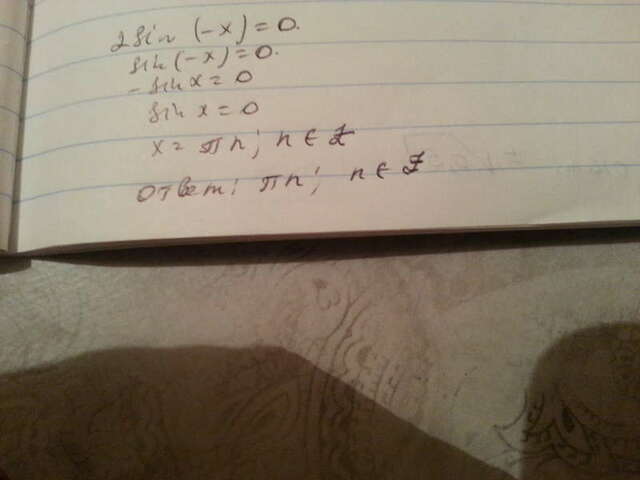 2sin (-x)=0.
sin(-x)=0.
-sin x=0
sin x=0
x= πn; n∈Z
Ответ: πn; n∈Z